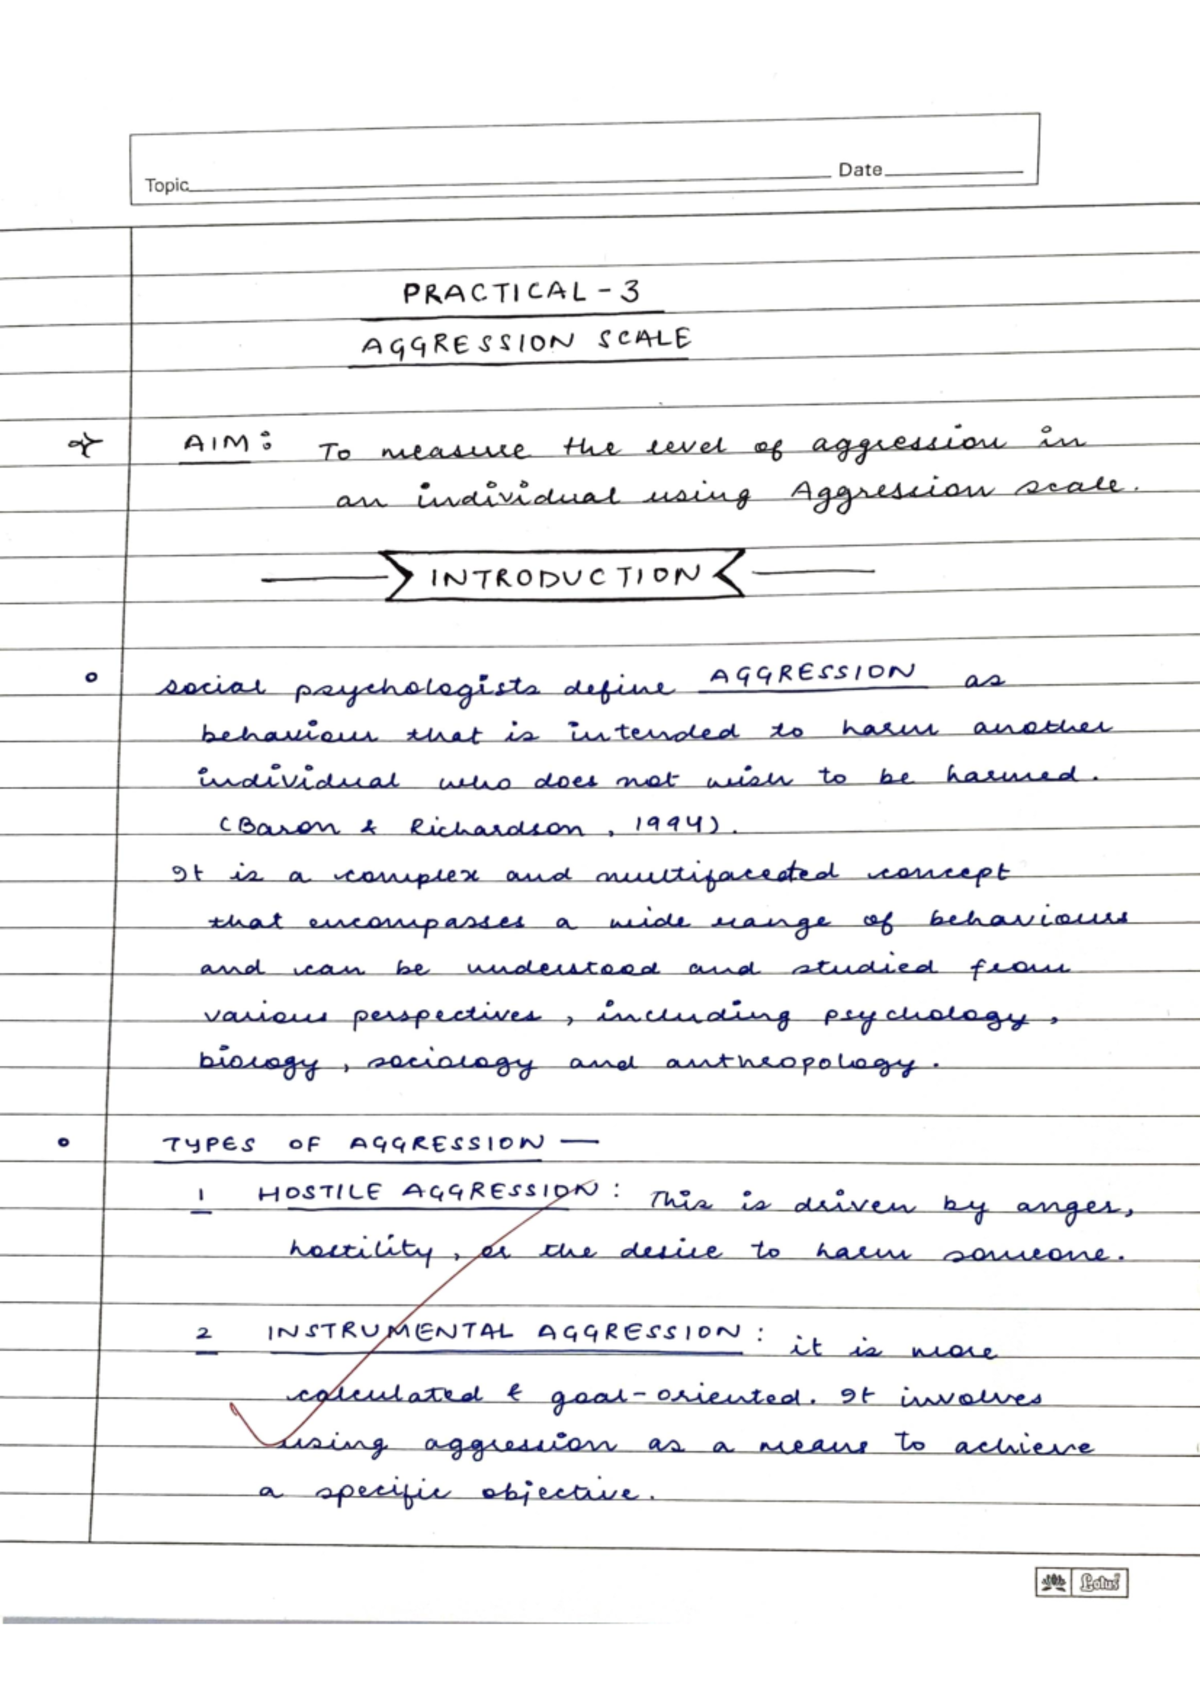 Topic Date
PRACTICAL - 3
AGGRESSION SCALE
AIM: To measure the level of aggression in
an individual using Aggression scale.
INTRODUCTION
social psychologists define AGGRESSION as
behaviour that is intended to harm another
individual who does not wish to be harmed.
(Baron & Richardson, 1994).
It is a complex and multifaceted concept
that encompasses a wide range of behaviours
and can be understood and studied from
various perspectives, including psychology,
biology, sociology and anthropology.
TYPES OF AGGRESSION —
1 HOSTILE AGGRESSION: This is driven by anger,
hostility, or the desire to harm someone.
2 INSTRUMENTAL AGGRESSION: it is more
calculated & goal-oriented. It involves
using aggression as a means to achieve
a specific objective.
Lotus